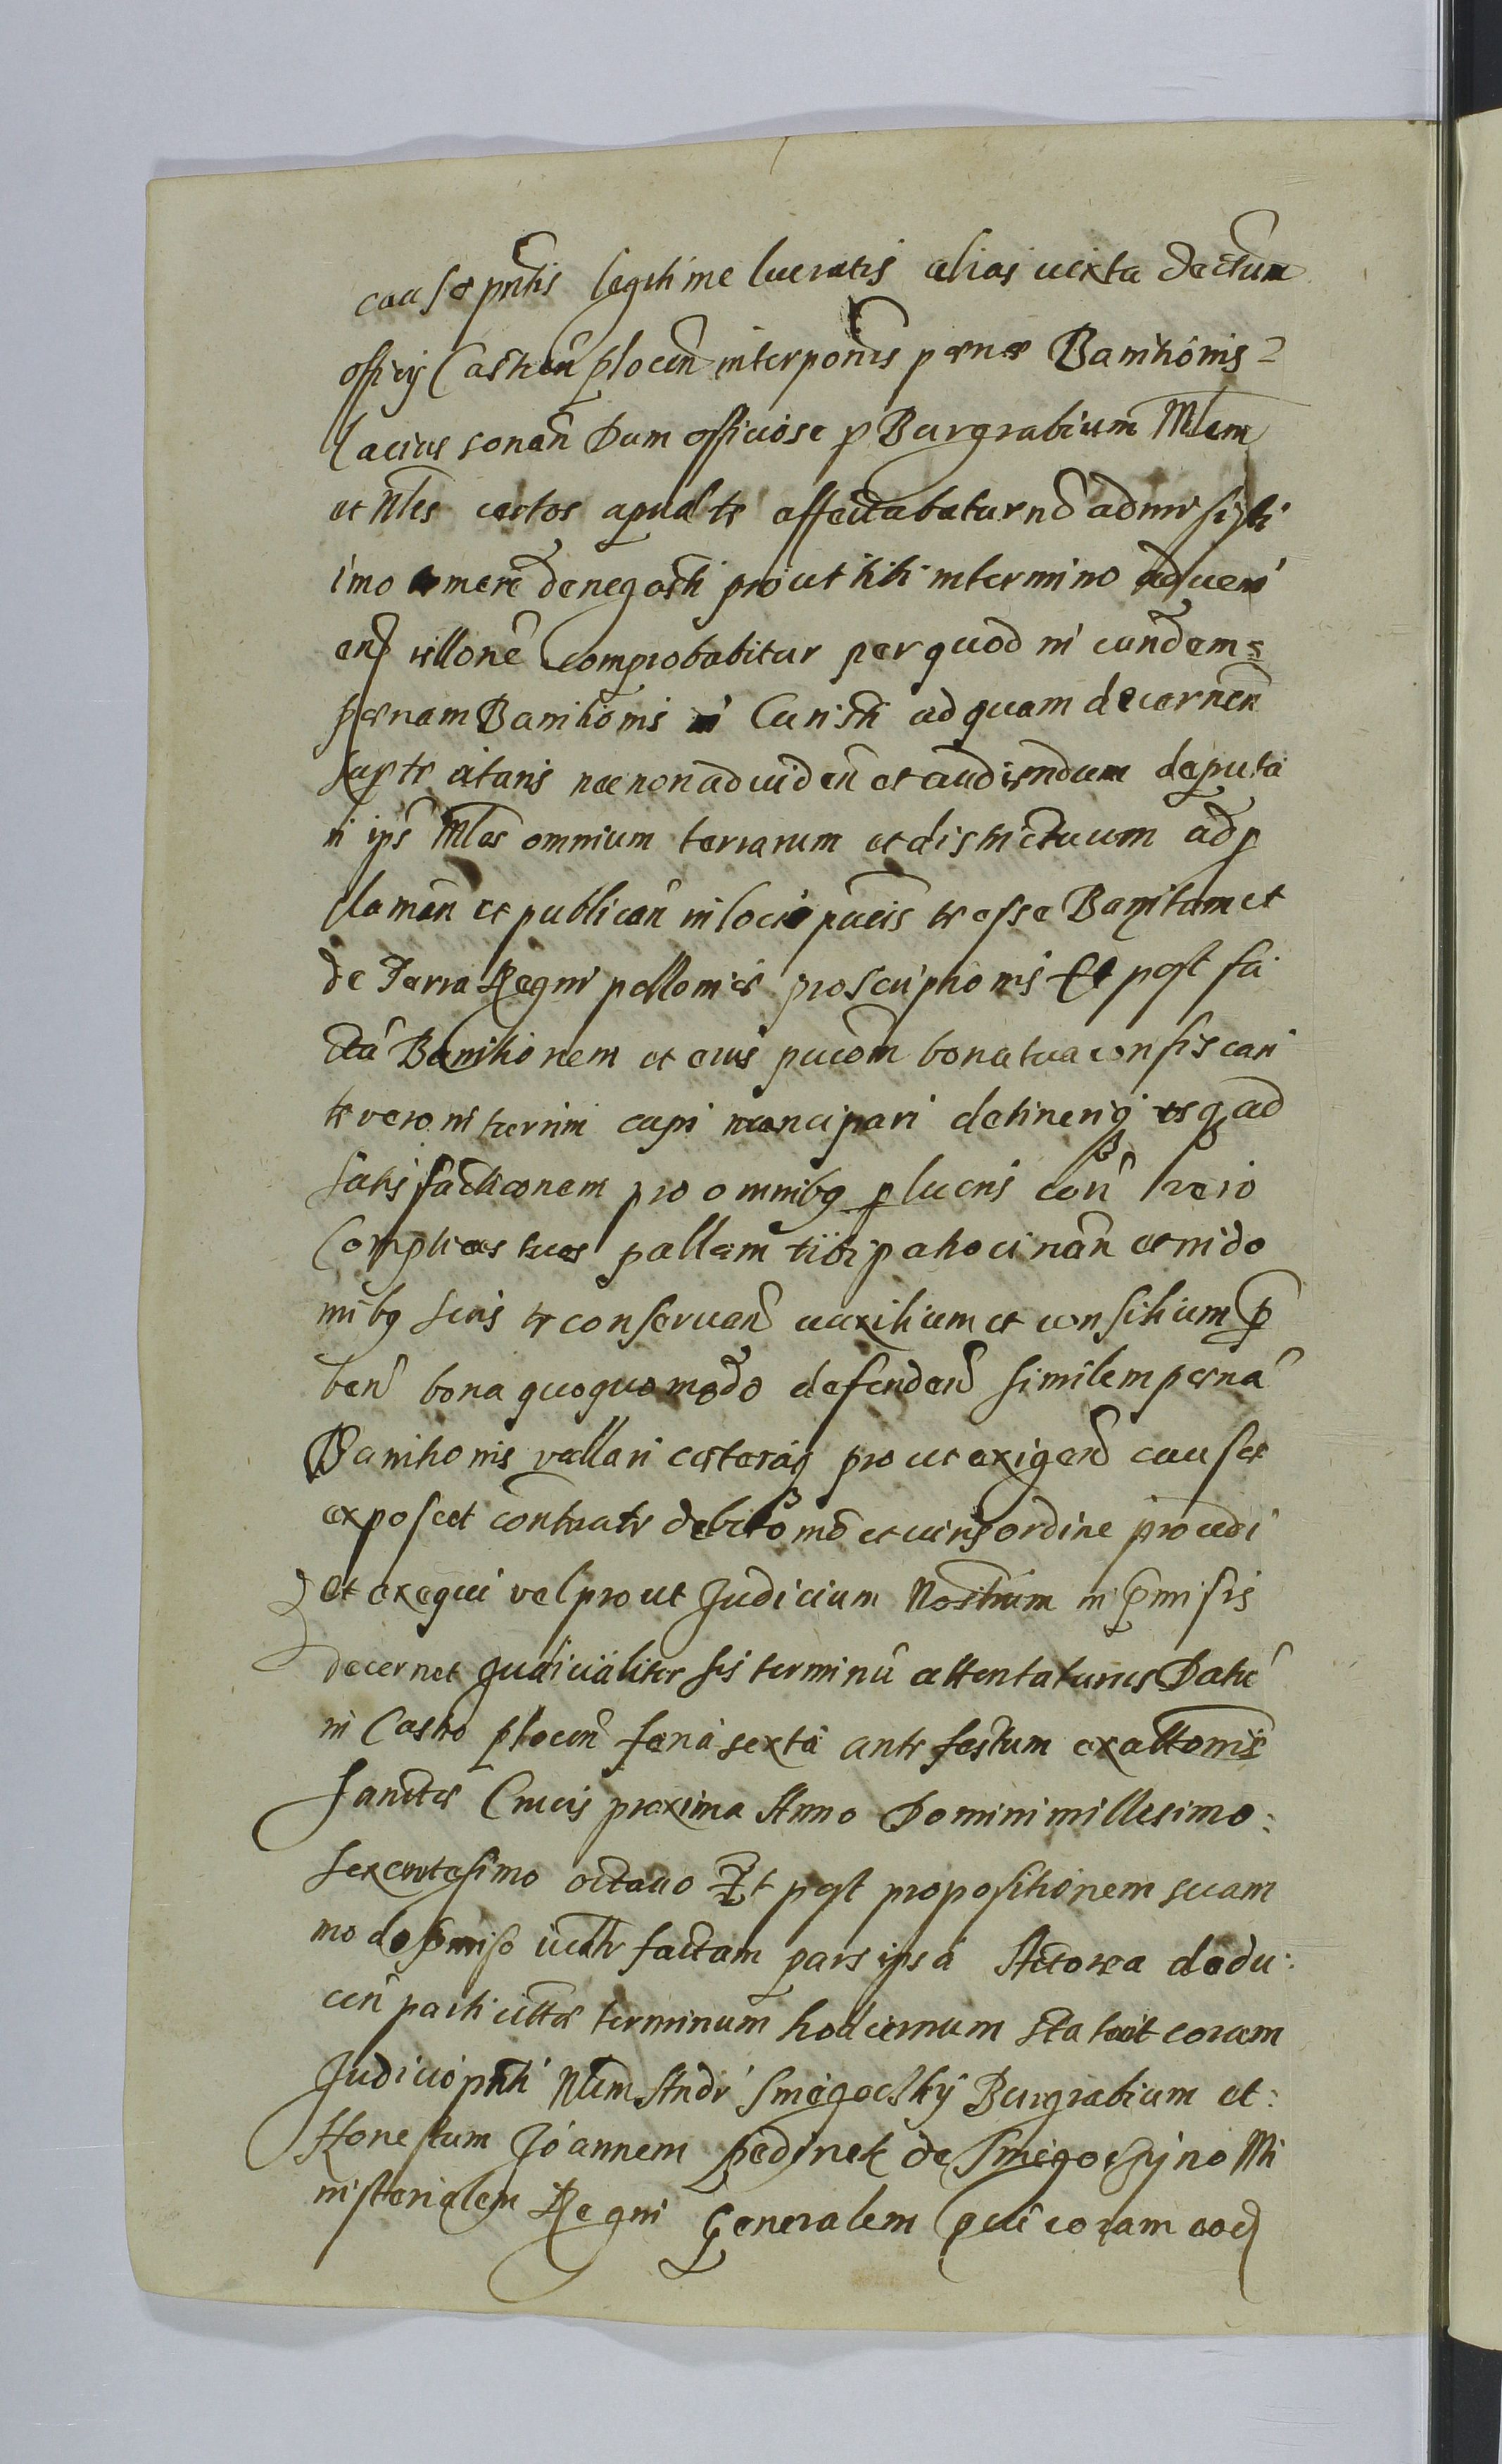 causæ pntis legitime lucratis alias iuxta dectum
officij Castren plocen interponens pænæ Banitionis
lacius sonan Dum officiose p Burgrabium Mlem
et Nles certos apud te affectabatur nō admisisti
imo temere denegasti prout tibi in termino
comprobabitur per quod in eandem
pænam Banitionis Curisti ad quam decernen
sup te citaris necnon ad viden et audiendum deputa
ri ips Mles omnium terrarum et districtuum ad p
claman et publican in locis te esse Banitum et
de Terra Regni polloniæ proscriptionis Et post fa
ctā Banitionem et eius pucom bona tua confiscari
te vero in turrim capi mancipari detinerig usq ad
satisfacticonem pro omnibq plucris con vero
Complices tuos pallam tibi patrocinan et in do
mibq suis te conservan auxilium et consilium p
ben bona quoquomodo defenden similem pænā
Banitionis vallari cæteraq prout exigen causæ
exposcet contra te debito mō et iuris ordine procedi
et exequi vel prout Judicium Nostrum in pmisis
decernet Judicialiter sis terminū attentaturus Datū
in Castro plocen feria sexta ante festum exaltonis
sanctæ Crucis proxima Anno Domini millesimo
sexcentesimo octavo Et post propositionem suam
modo pmiso factam pars ipsa Actorea dedu
cen particulæ terminum hodiernum statuit coram
Judicio pnti Nlem Andr Smegoczky Burgrabium et
Honestum Joannem de Mi
nisterialem Regni Generalem qui coram eod